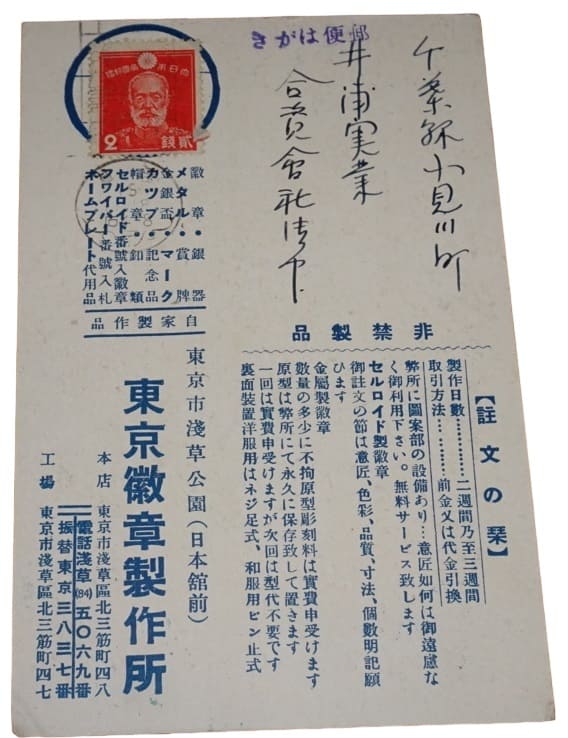 郵便はがき
千葉縣小見川町
井浦実業
合資會社御中
大日本帝國郵便
2
貳錢
徽章・銀器
メタル・賞牌
金銀盃・マーク
カップ・記念品
帽章・釦類
セルロイド番號入徽章
フワイバー番號入札
ネームプレート代用品
自家製作品
非禁製品
【註文の栞】
製作日數…………二週間乃至三週間
取引方法…………前金又は代金引換
弊所に圖案部の設備あり…意匠如何は御遠慮な
く御利用下さい。無料サービス致します
セルロイド製徽章
御註文の節は意匠、色彩、品質、寸法、個數明記願
ひます
金屬製徽章
數量の多少に不拘原型彫刻料は實費申受けます
原型は弊所にて永久に保存致して置きます
一回は實費申受けますが次回は型代不要です
裏面裝置洋服用はネジ足式、和服用ピン止式
東京市淺草公園(日本館前)
東京徽章製作所
本店 東京市淺草區北三筋町四八
電話淺草(84)五〇六九番
振替東京三八三七番
工場 東京市淺草區北三筋町四七